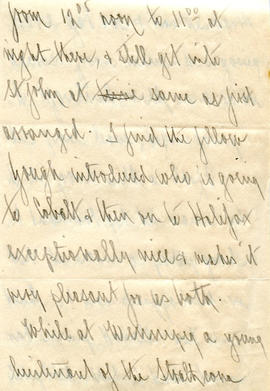 from 12⁰⁰ noon to 11⁰⁰ at
night there, & still get into
St John at time same as first
arranged. I find the fellow
Gough introduced who is going
to Cobalt & then on to Halifax
exceptionally nice & makes it
very pleasant for us both.
While at Winnipeg a young
lieutenant of the Strathcona